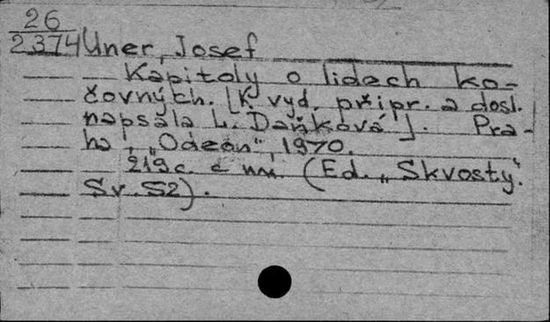 26
2374 Uner, Josef
Kapitoly o lidech ko-
čovných. [K vyd. připr. a dosl.
napsala L. Daňková]. Pra-
ha, „Odeon", 1970.
219 c. c илл. (Ed. „Skvosty".
Sv. 52).